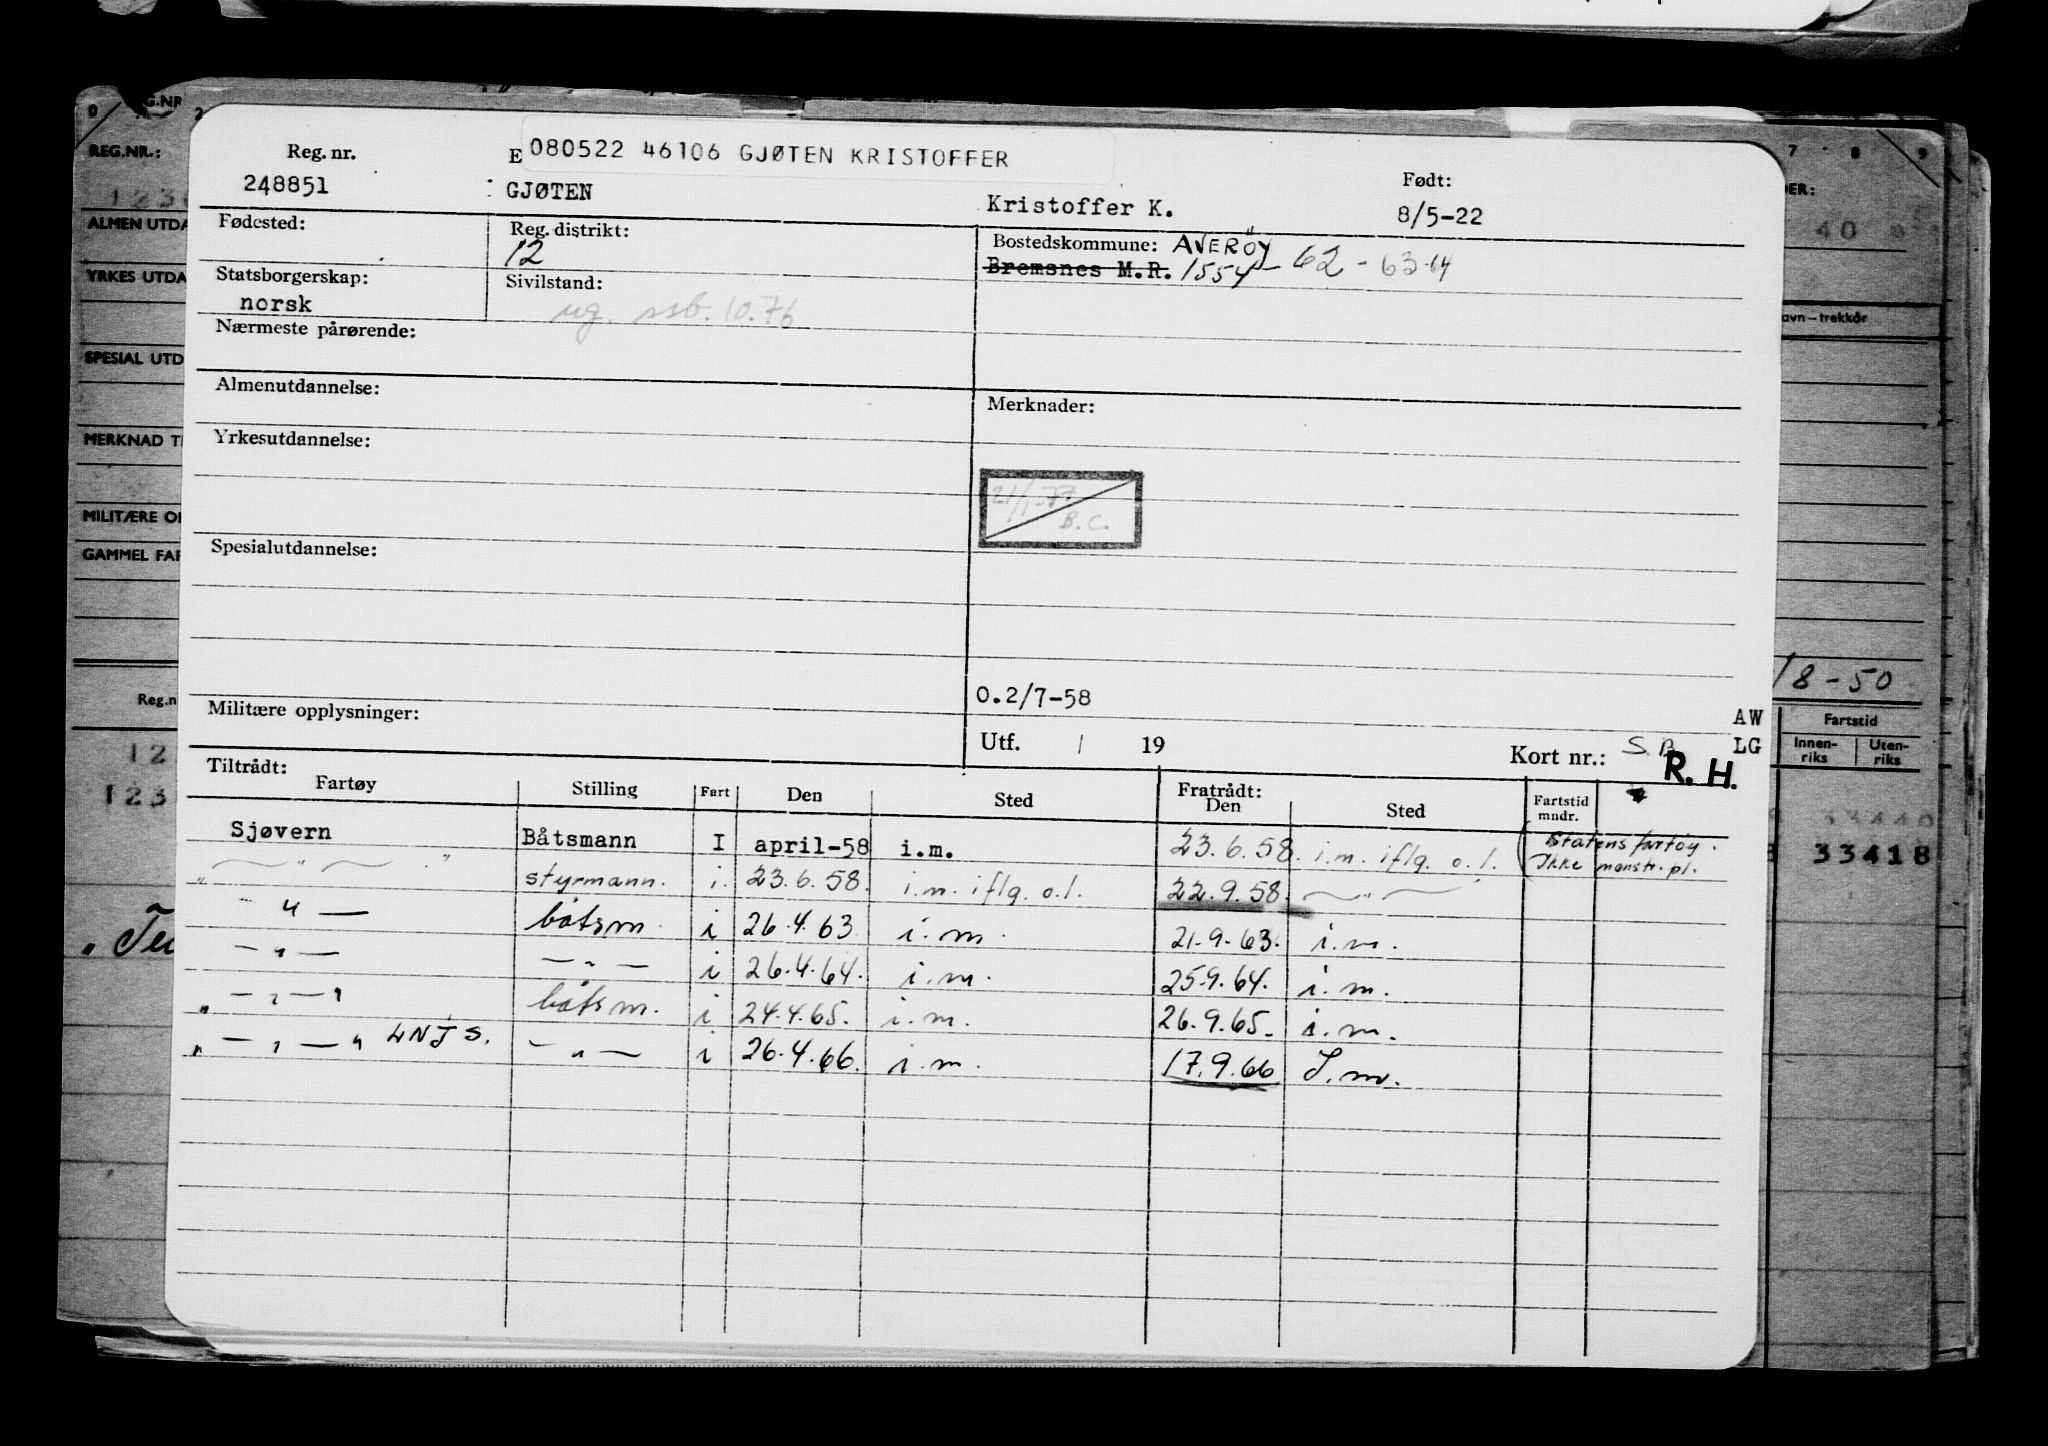 Reg. nr.
E 080522 46106 GJØTEN KRISTOFFER
248851
: GJØTEN
Kristoffer K.
Født:
8/5-22
Fødested:
Reg. distrikt:
12
Bostedskommune: AVERÖY
Bremsnes M.R. 1554 - 62 - 63-64
Statsborgerskap:
norsk
Sivilstand:
ug. ssb. 10.76
Nærmeste pårørende:
Almenutdannelse:
Merknader:
Yrkesutdannelse:
21/1-77
B.C.
Spesialutdannelse:
O.2/7-58
Militære opplysninger:
Utf. / 19
Kort nr.: S.B.
AW
LG
R. H.
Tiltrådt:
Fartøy Stilling Fart Den Sted
Fratrådt:
Den Sted
Fartstid
mndr.
Sjøvern Båtsmann I april-58 i.m. 23.6.58. i.m. iflg. o.l. (Statens fartøy.
Ikke mønstr. pl.
" — " — " styrmann. i. 23.6.58. i.m. iflg. o.l. 22.9.58. — " —
- " — båtsm. i 26.4.63 i.m. 21.9.63. i.m.
— " — — " — i 26.4.64. i.m. 25.9.64. i.m.
" — " — " båtsm. i 24.4.65. i.m. 26.9.65. i.m.
" — " — " LNJS. — " — i 26.4.66. i.m. 17.9.66 I.m.
REG.NR.:
ALMEN UTDA
YRKES UTDA
SPESIAL UTD
MERKNAD T
MILITÆRE O
GAMMEL FAR
Reg.n
12
123
7 8 9
DER:
40
avn – trekkår
/8-50
Fartstid
Innen-
riks
Uten-
riks
53440
33418